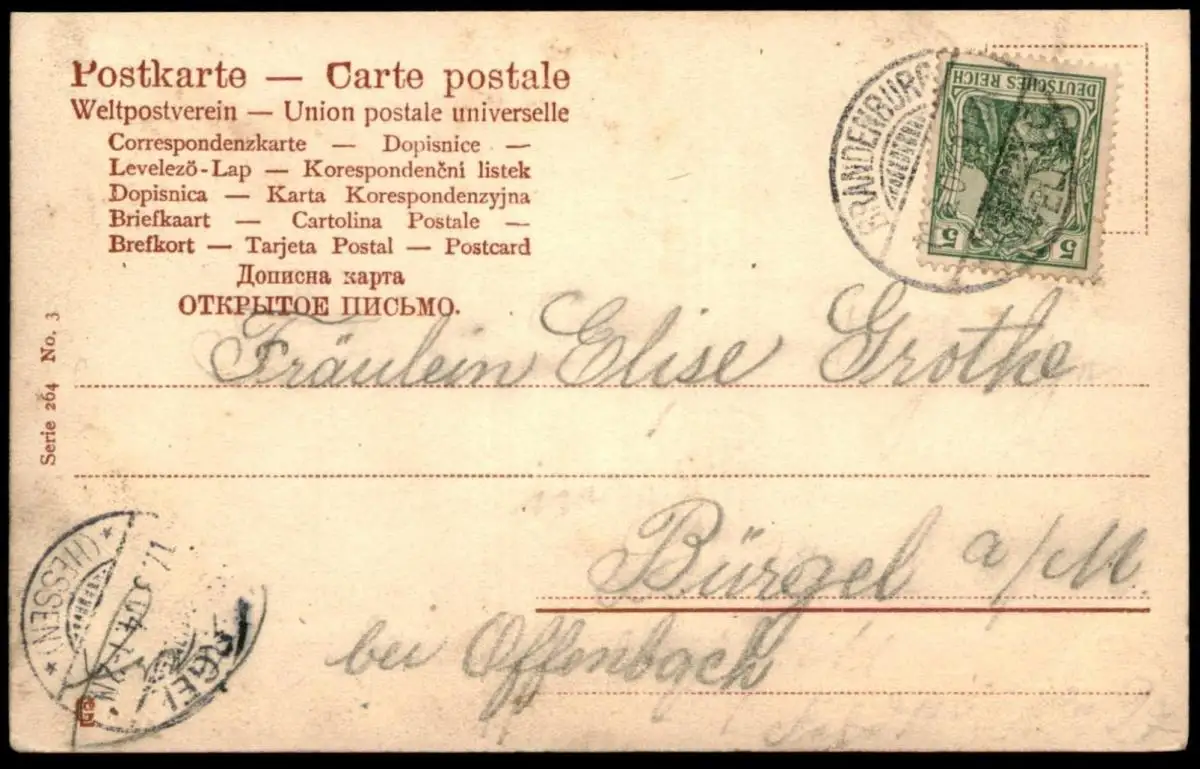 Postkarte — Carte postale
Weltpostverein — Union postale universelle
Correspondenzkarte — Dopisnice —
Levelező-Lap — Korespondenční listek
Dopisnica — Karta Korespondenzyjna
Briefkaart — Cartolina Postale —
Brefkort — Tarjeta Postal — Postcard
Дописна карта
ОТКРЫТОЕ ПИСЬМО.
BRANDENBURG
DEUTSCHES REICH
5 5
Serie 264 No. 3
Fräulein Elise Grothe
Bürgel a/M.
bei Offenbach
*(HESSEN)*